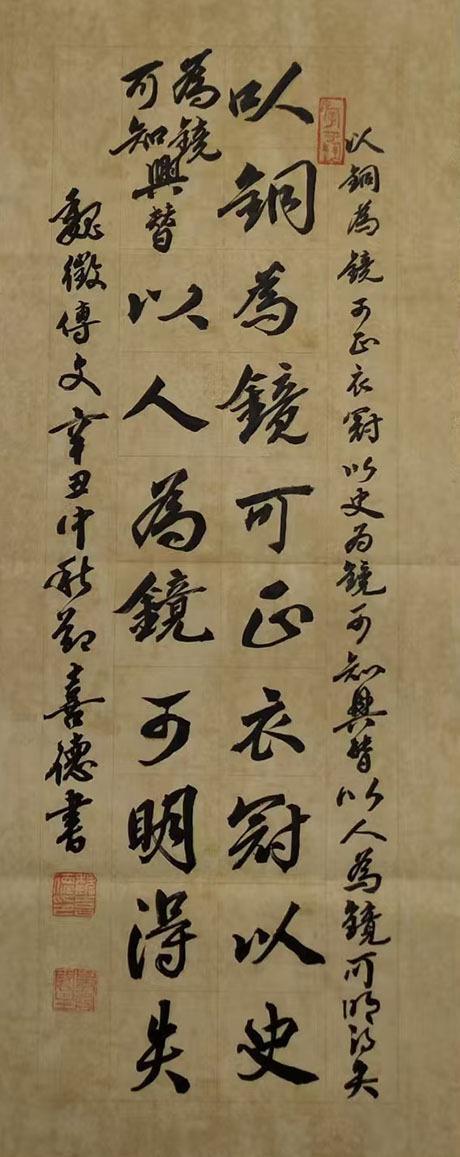 以銅為鏡可正衣冠以史为鏡可知興替以人為鏡可明得失
以銅為鏡可正衣冠以史
為鏡
可知興替
以人為鏡可明得失
魏徵傳文辛丑中秋鄭喜德書